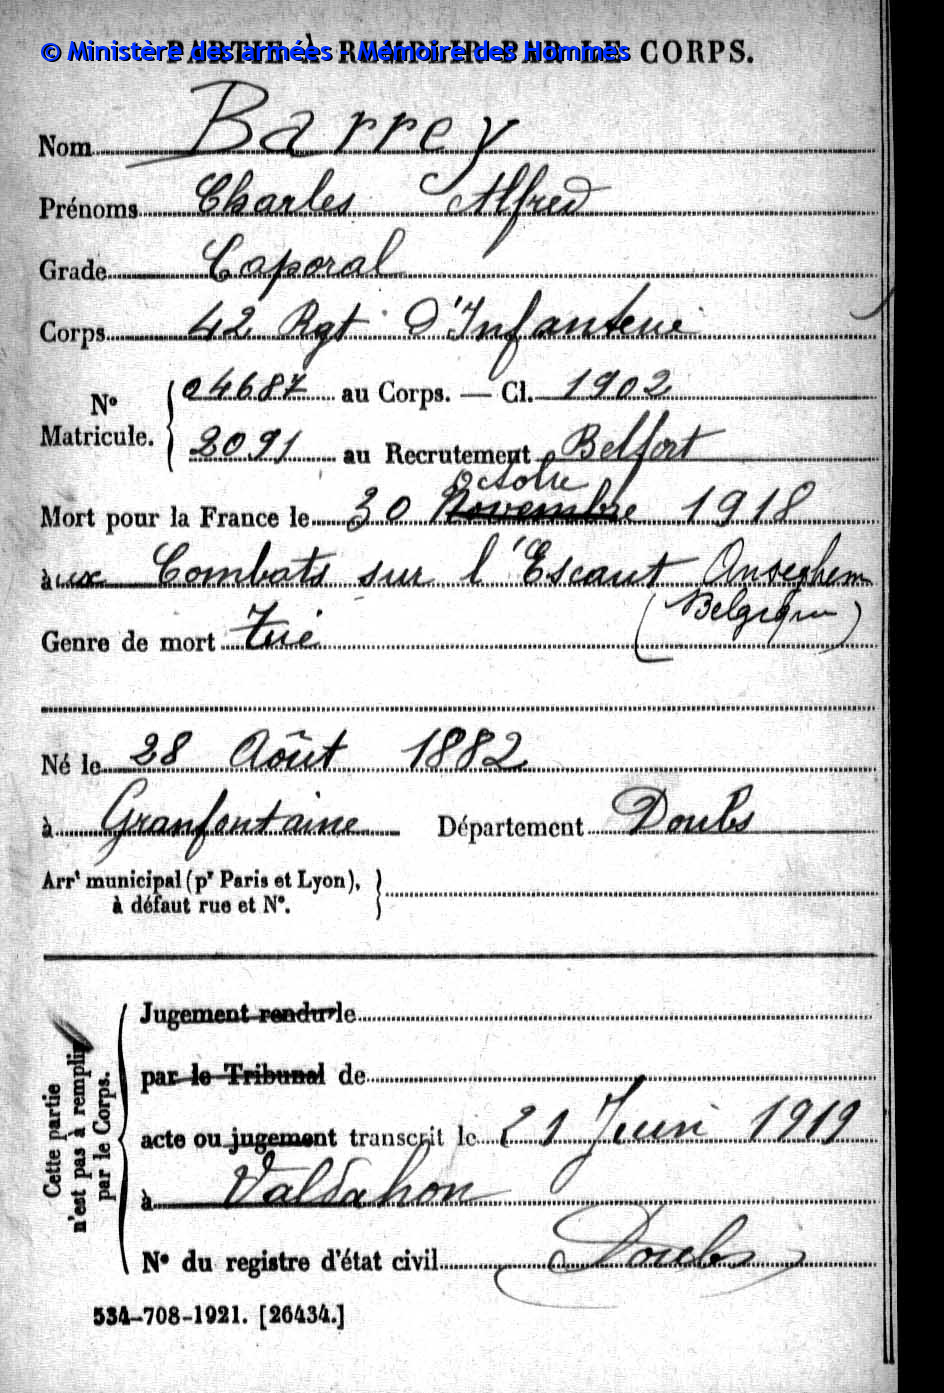 © Ministère des armées - Mémoire des Hommes
PARTIE À REMPLIR PAR LE CORPS.
Nom Barrey
Prénoms Charles Alfred
Grade Caporal
Corps 42 Rgt d'Infanterie
N° Matricule. { 04687 au Corps. — Cl. 1902
2091 au Recrutement Belfort
Octobre
Mort pour la France le 30 Novembre 1918
àux Combats sur l'Escaut Anseghem
(Belgique)
Genre de mort Tué
Né le 28 Aôut 1882
à Granfontaine Département Doubs
Arrt municipal (pr Paris et Lyon),
à défaut rue et N°.
Cette partie
n'est pas à remplir
par le Corps.
Jugement rendu le
par le Tribunal de
acte ou jugement transcrit le 21 Juin 1919
à Valdahon
N° du registre d'état civil Doubs
534-708-1921. [26434.]